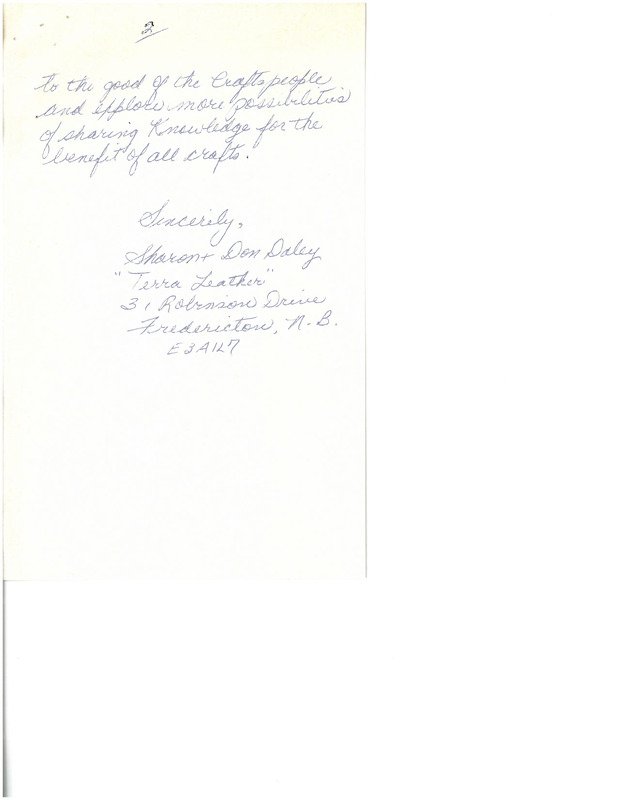 2
to the good of the Craftspeople
and explore more possibilities
of sharing Knowledge for the
benefit of all crafts.
Sincerily,
Sharon + Don Daley
"Terra Leather"
31 Robinson Drive
Fredericton, N.B.